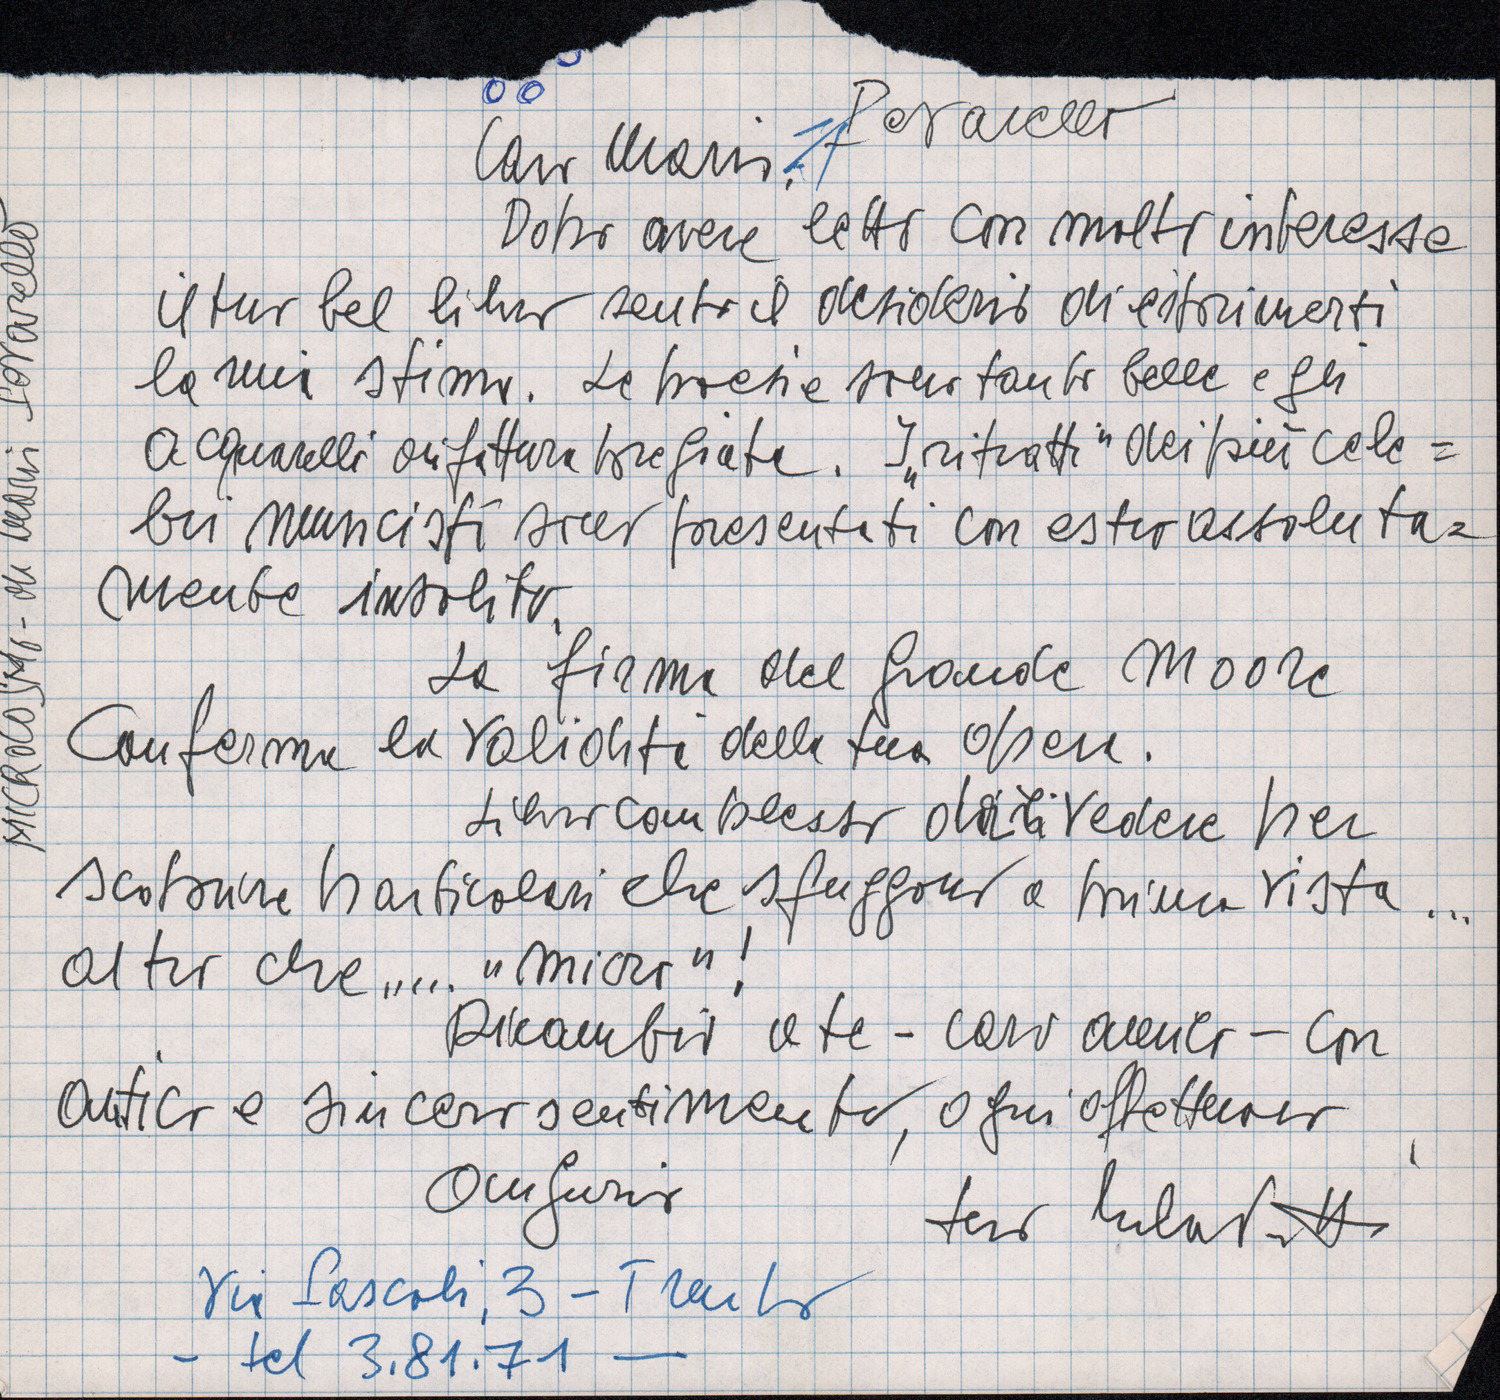 Caro Mario, Pavarello
Dopo avere letto con molto interesse
il tuo bel libro sento il desiderio di esprimerti
la mia stima. Le poesie sono tanto belle e gli
acquarelli di fattura pregiata. I „ritratti" dei più cele=
bri musicisti sono presentati con estro assoluta=
mente insolito.
La firma del grande Moore
conferma la validità della tua opera.
Libro complesso da rivedere per
scoprire particolari che sfuggono a prima vista ...
altro che ..... "micro"!
Ricambio a te - caro amico - con
antico e sincero sentimento, ogni affettuoso
augurio tuo
Via Pascoli, 3 - Trento
- tel 3.81.71 —
di Mario Pavarello